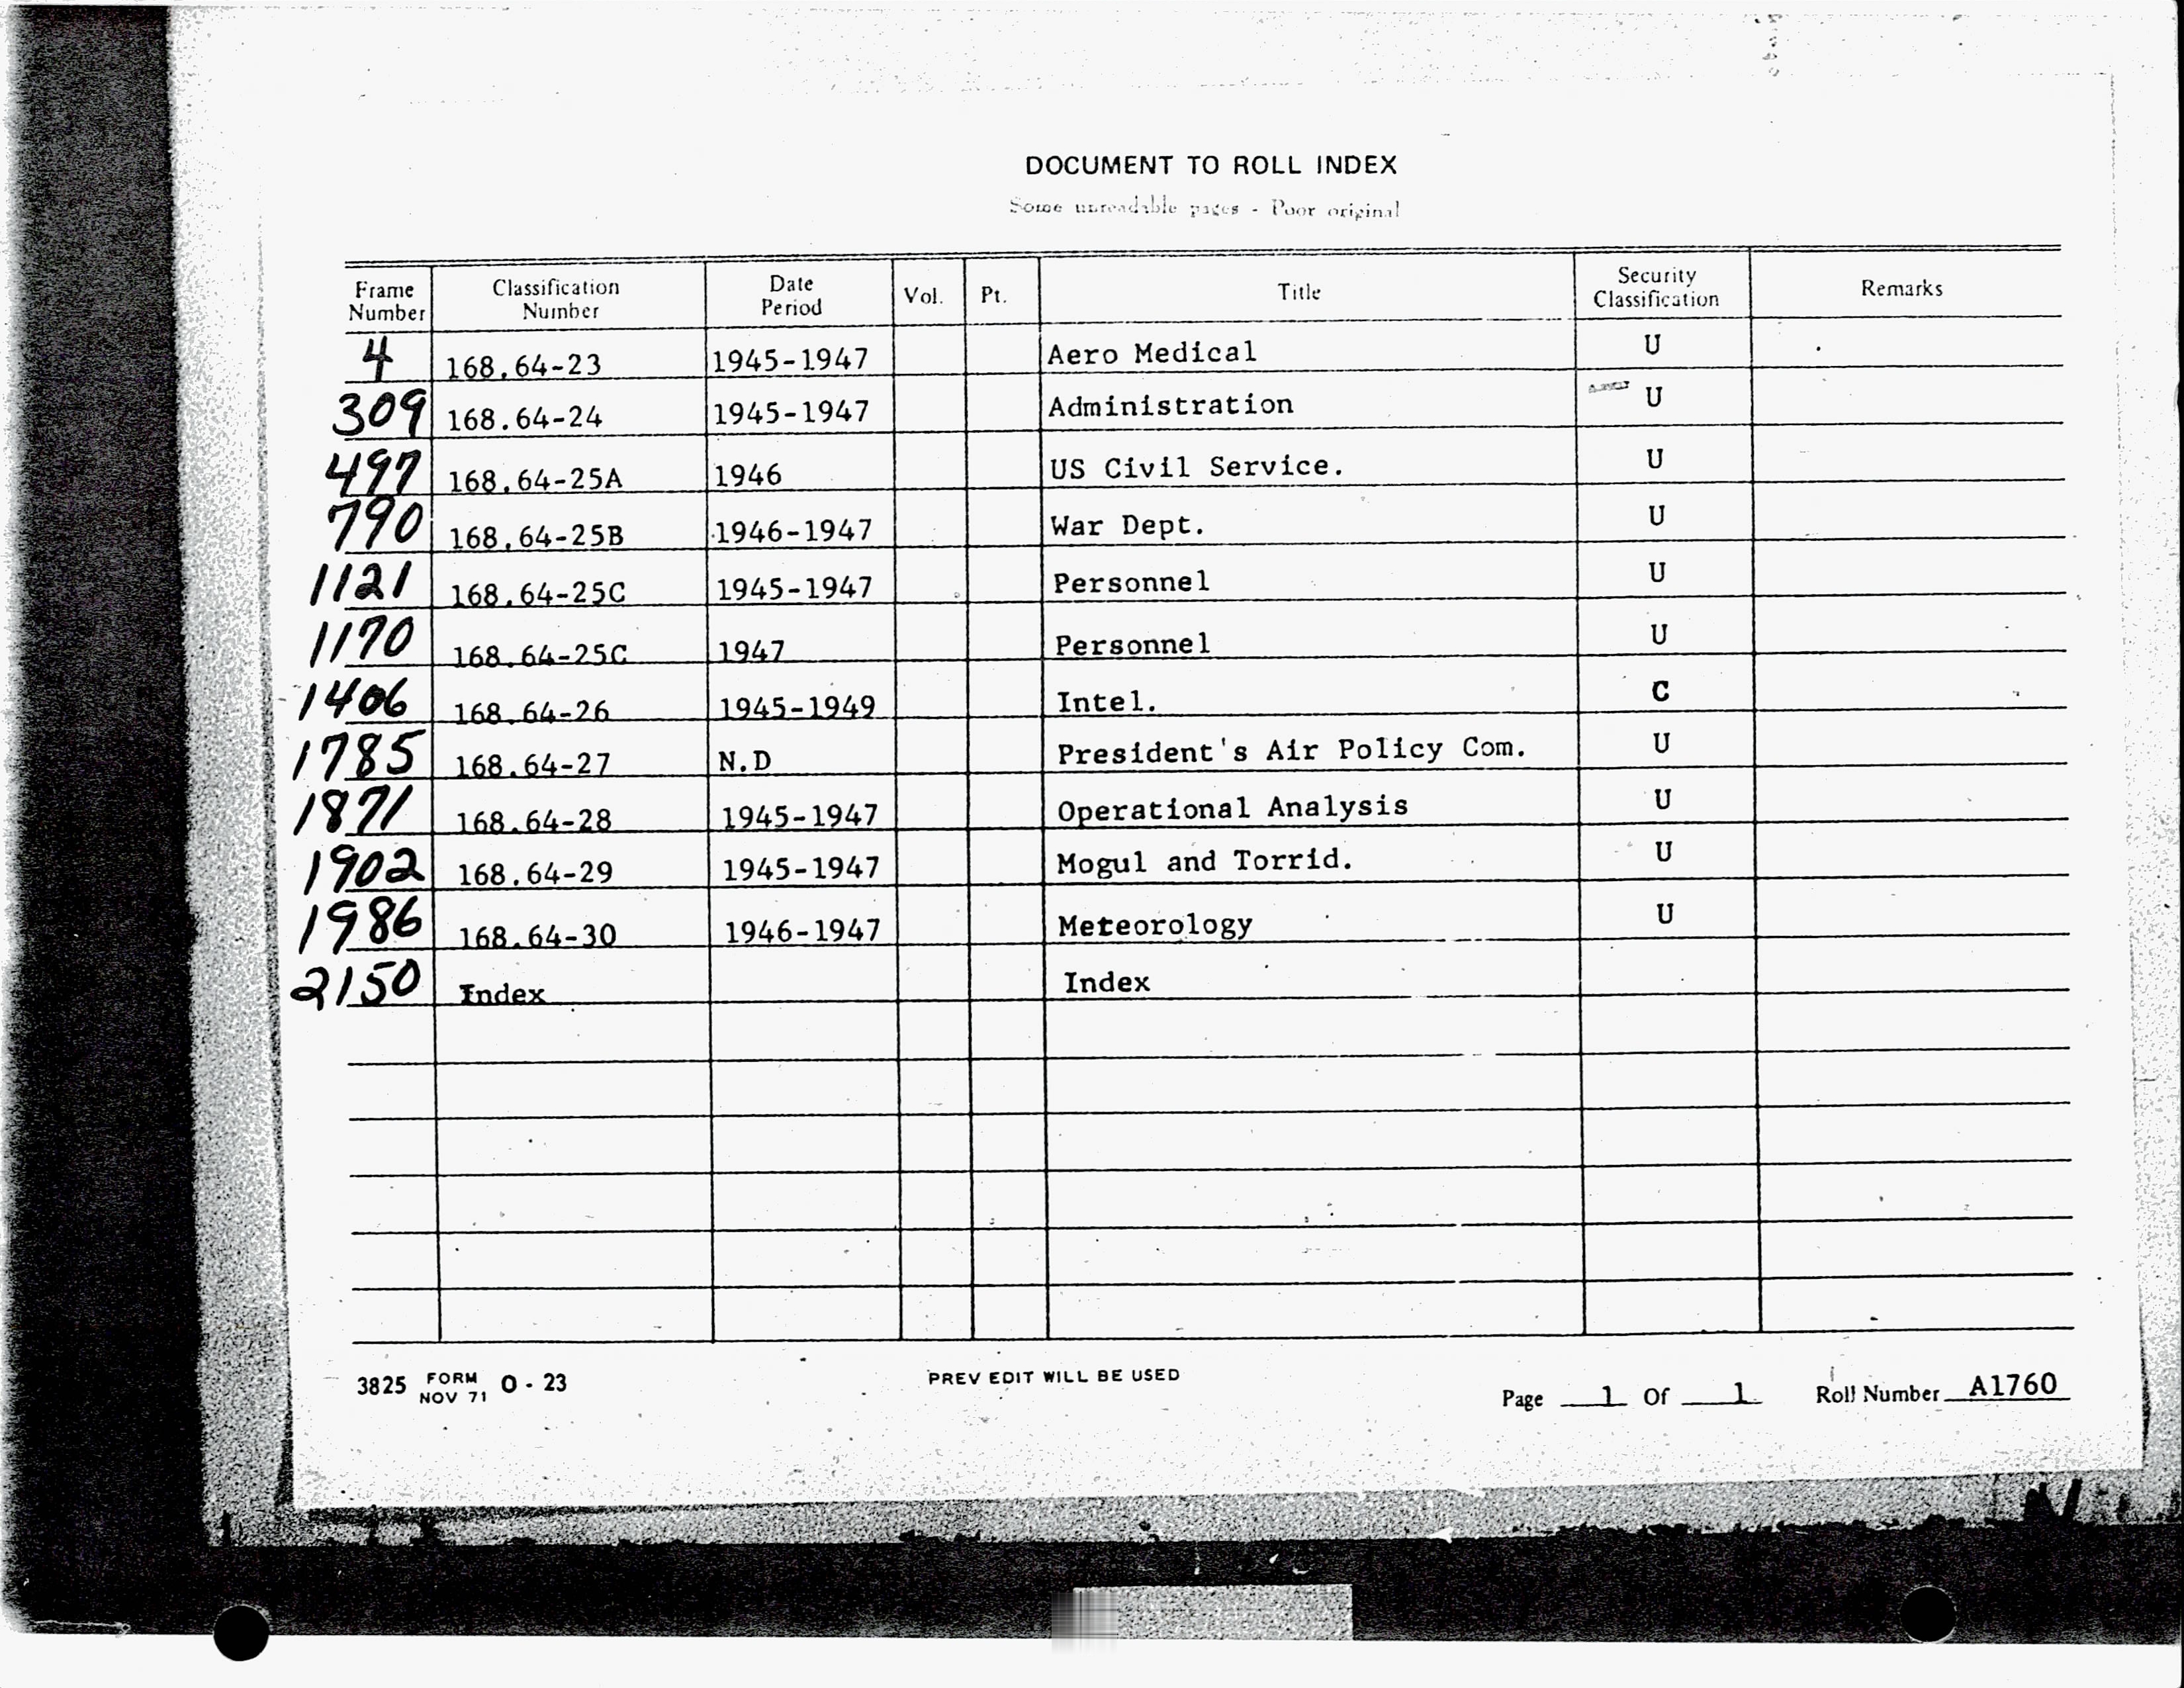 DOCUMENT TO ROLL INDEX
Some unreadable pages - Poor original
Frame Number Classification Number Date Period Vol. Pt. Title Security Classification Remarks
4 168.64-23 1945-1947 Aero Medical U
309 168.64-24 1945-1947 Administration U
497 168.64-25A 1946 US Civil Service. U
790 168.64-25B 1946-1947 War Dept. U
1121 168.64-25C 1945-1947 Personnel U
1170 168.64-25C 1947 Personnel U
1406 168.64-26 1945-1949 Intel. C
1785 168.64-27 N.D President's Air Policy Com. U
1871 168.64-28 1945-1947 Operational Analysis U
1902 168.64-29 1945-1947 Mogul and Torrid. U
1986 168.64-30 1946-1947 Meteorology U
2150 Index Index
3825 FORM NOV 71 O - 23 PREV EDIT WILL BE USED Page 1 Of 1 Roll Number A1760